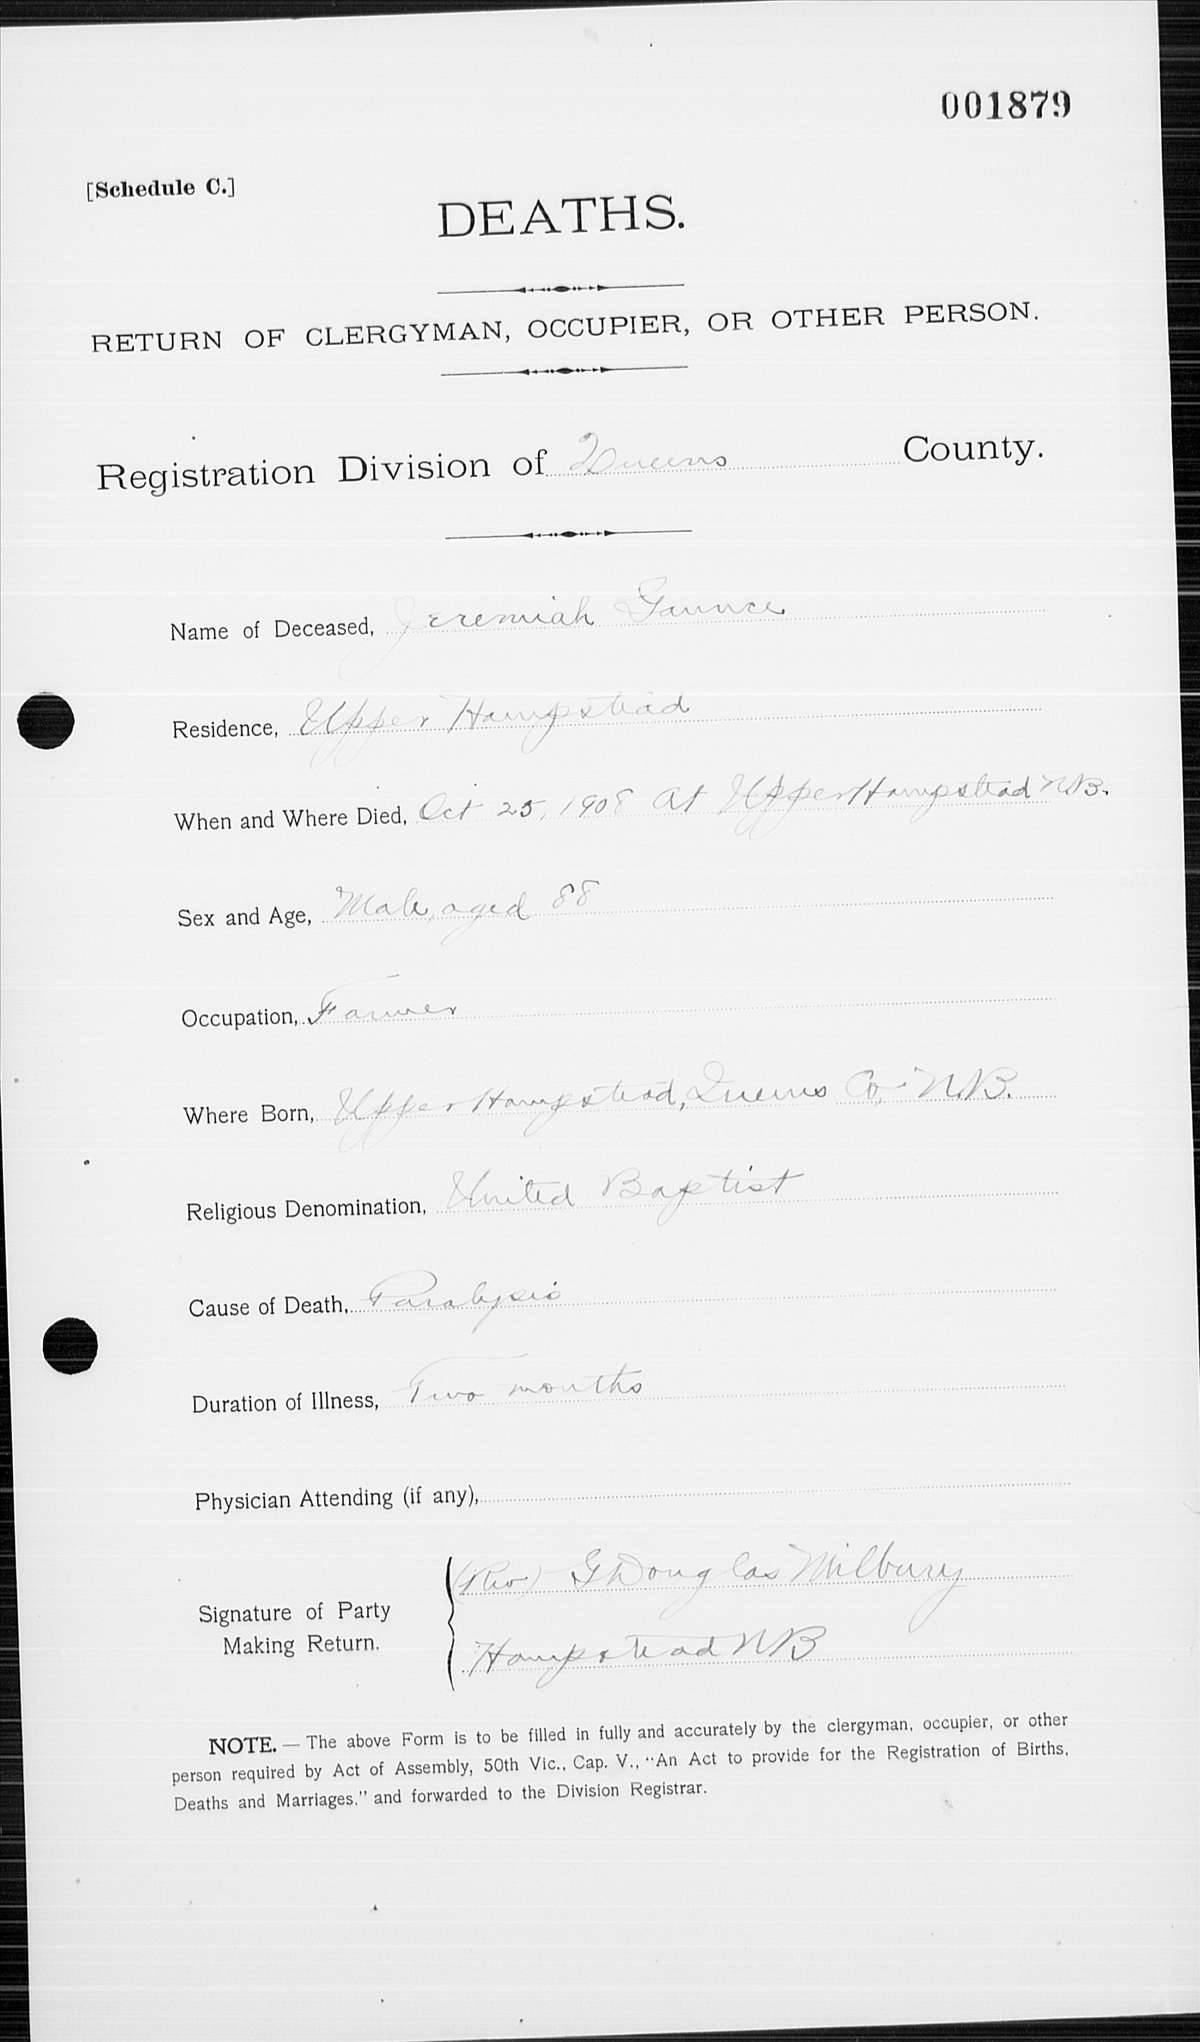 001879
[Schedule C.]
DEATHS.
RETURN OF CLERGYMAN, OCCUPIER, OR OTHER PERSON.
Registration Division of Queens County.
Name of Deceased, Jeremiah Gaunce
Residence, Upper Hampstead
When and Where Died, Oct 25, 1908 at Upper Hampstead N.B.
Sex and Age, Male, aged 88
Occupation, Farmer
Where Born, Upper Hampstead, Queens Co, N.B.
Religious Denomination, United Baptist
Cause of Death, Paralysis
Duration of Illness, Two months
Physician Attending (if any),
(Rev) G Douglas Milbury
Signature of Party
Making Return.
Hampstead NB
NOTE. — The above Form is to be filled in fully and accurately by the clergyman, occupier, or other
person required by Act of Assembly, 50th Vic., Cap. V., "An Act to provide for the Registration of Births,
Deaths and Marriages," and forwarded to the Division Registrar.